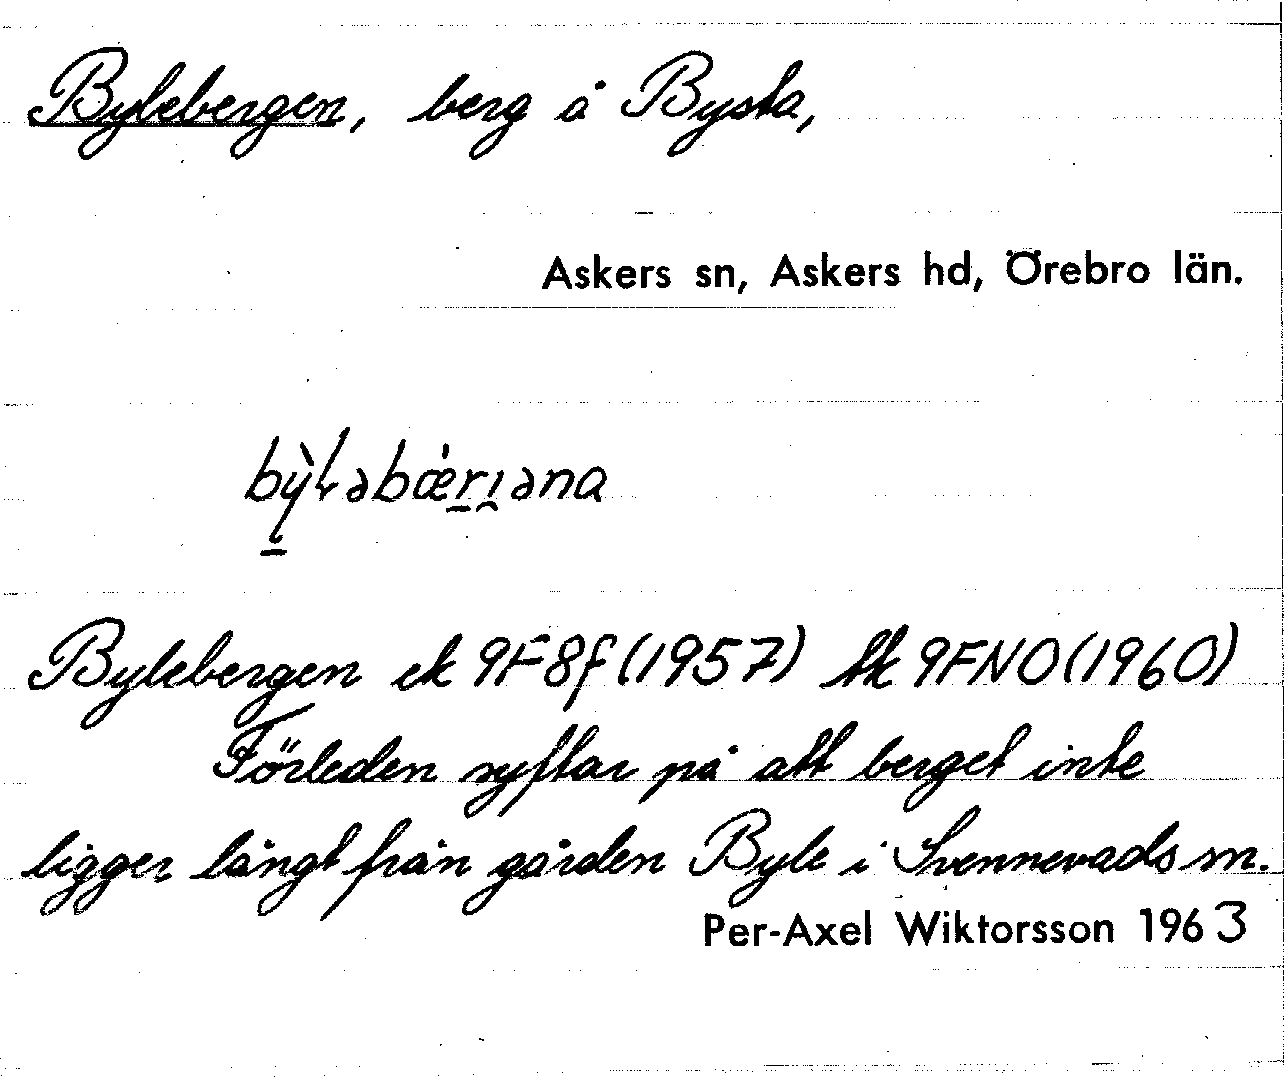 Bylebergen, berg å Bysta,
Askers sn, Askers hd, Örebro län.
bỳɫəbæ̀rɪ̯əna
Bylebergen ek 9F8f (1957) tk 9FNO (1960)
Förleden syftar på att berget inte
ligger långt från gården Byle i Svennevads sn.
Per-Axel Wiktorsson 1963